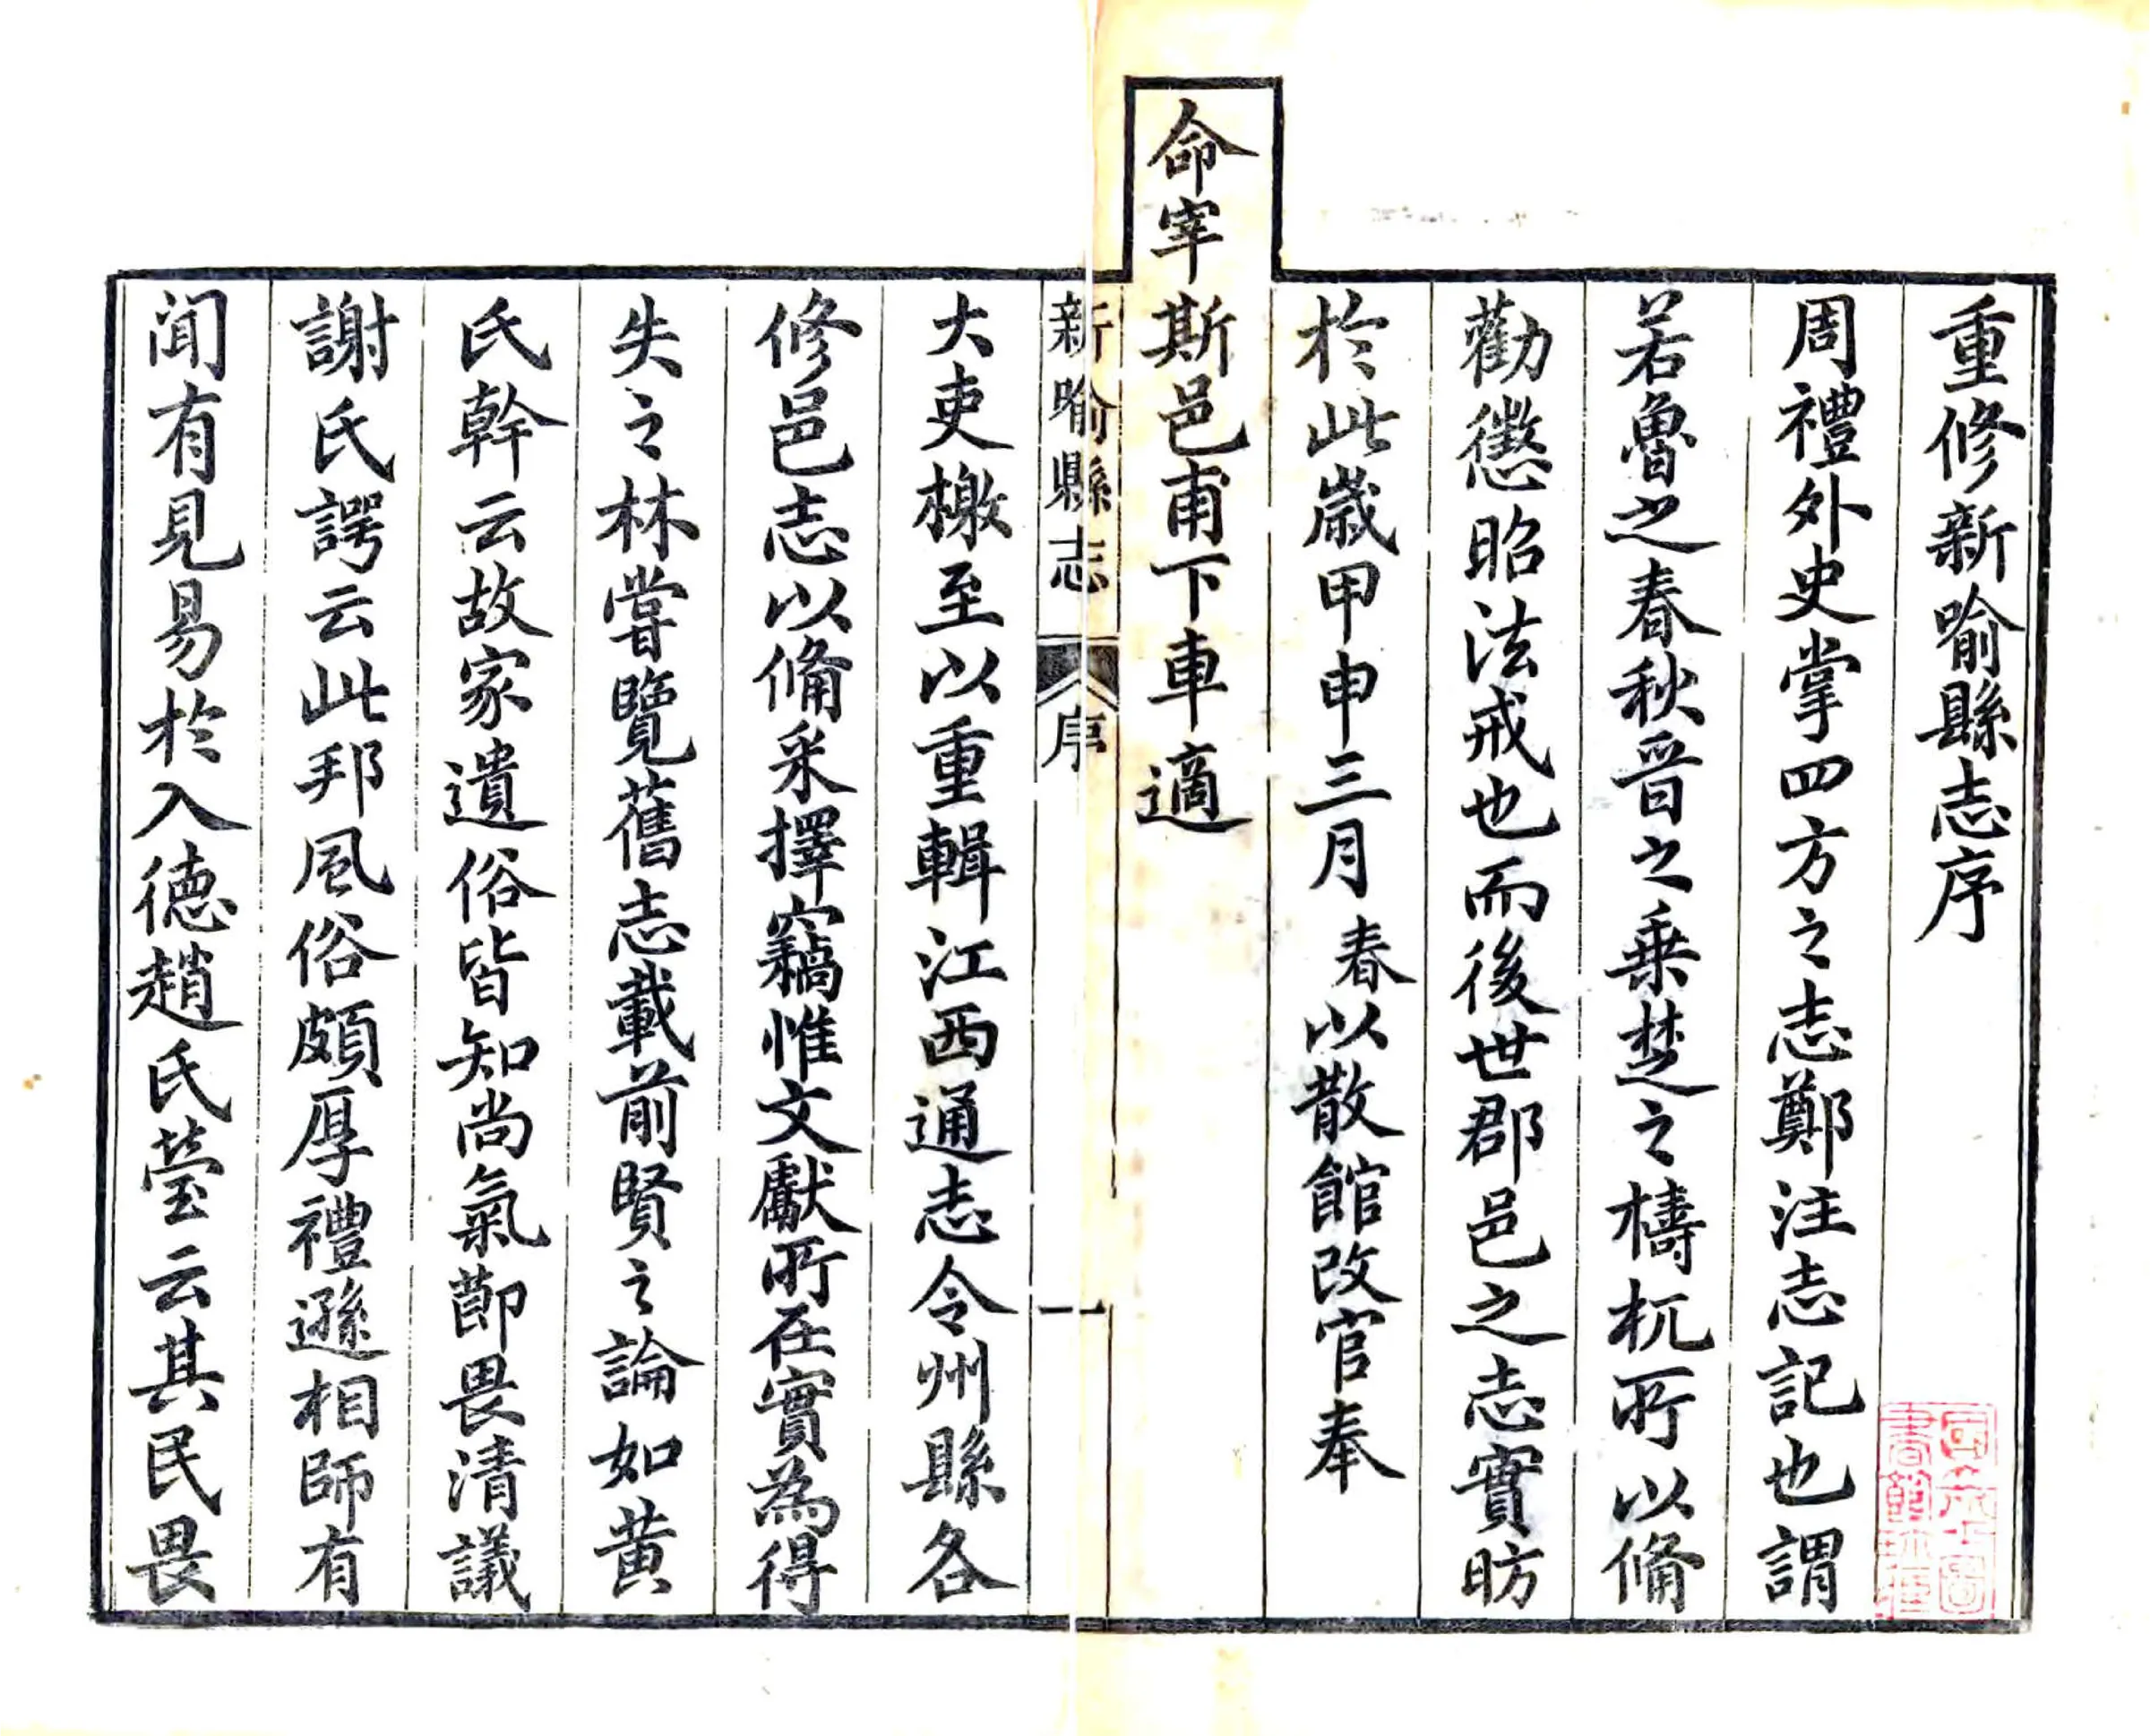 重修新喻縣志序
周禮外史掌四方之志鄭注志記也謂
若魯之春秋晉之乗楚之檮杌所以俻
勸懲昭法戒也而後世郡邑之志實昉
於此歲甲申三月春以散館改官奉
命宰斯邑甫下車適
新喻縣志 序 一
大吏檄至以重輯江西通志令州縣各
修邑志以俻采擇竊惟文獻所在實為得
失之林嘗覽舊志載前賢之論如黃
氏幹云故家遺俗皆知尚氣節畏清議
謝氏諤云此邦風俗頗厚禮遜相師有
聞有見易於入德趙氏瑩云其民畏